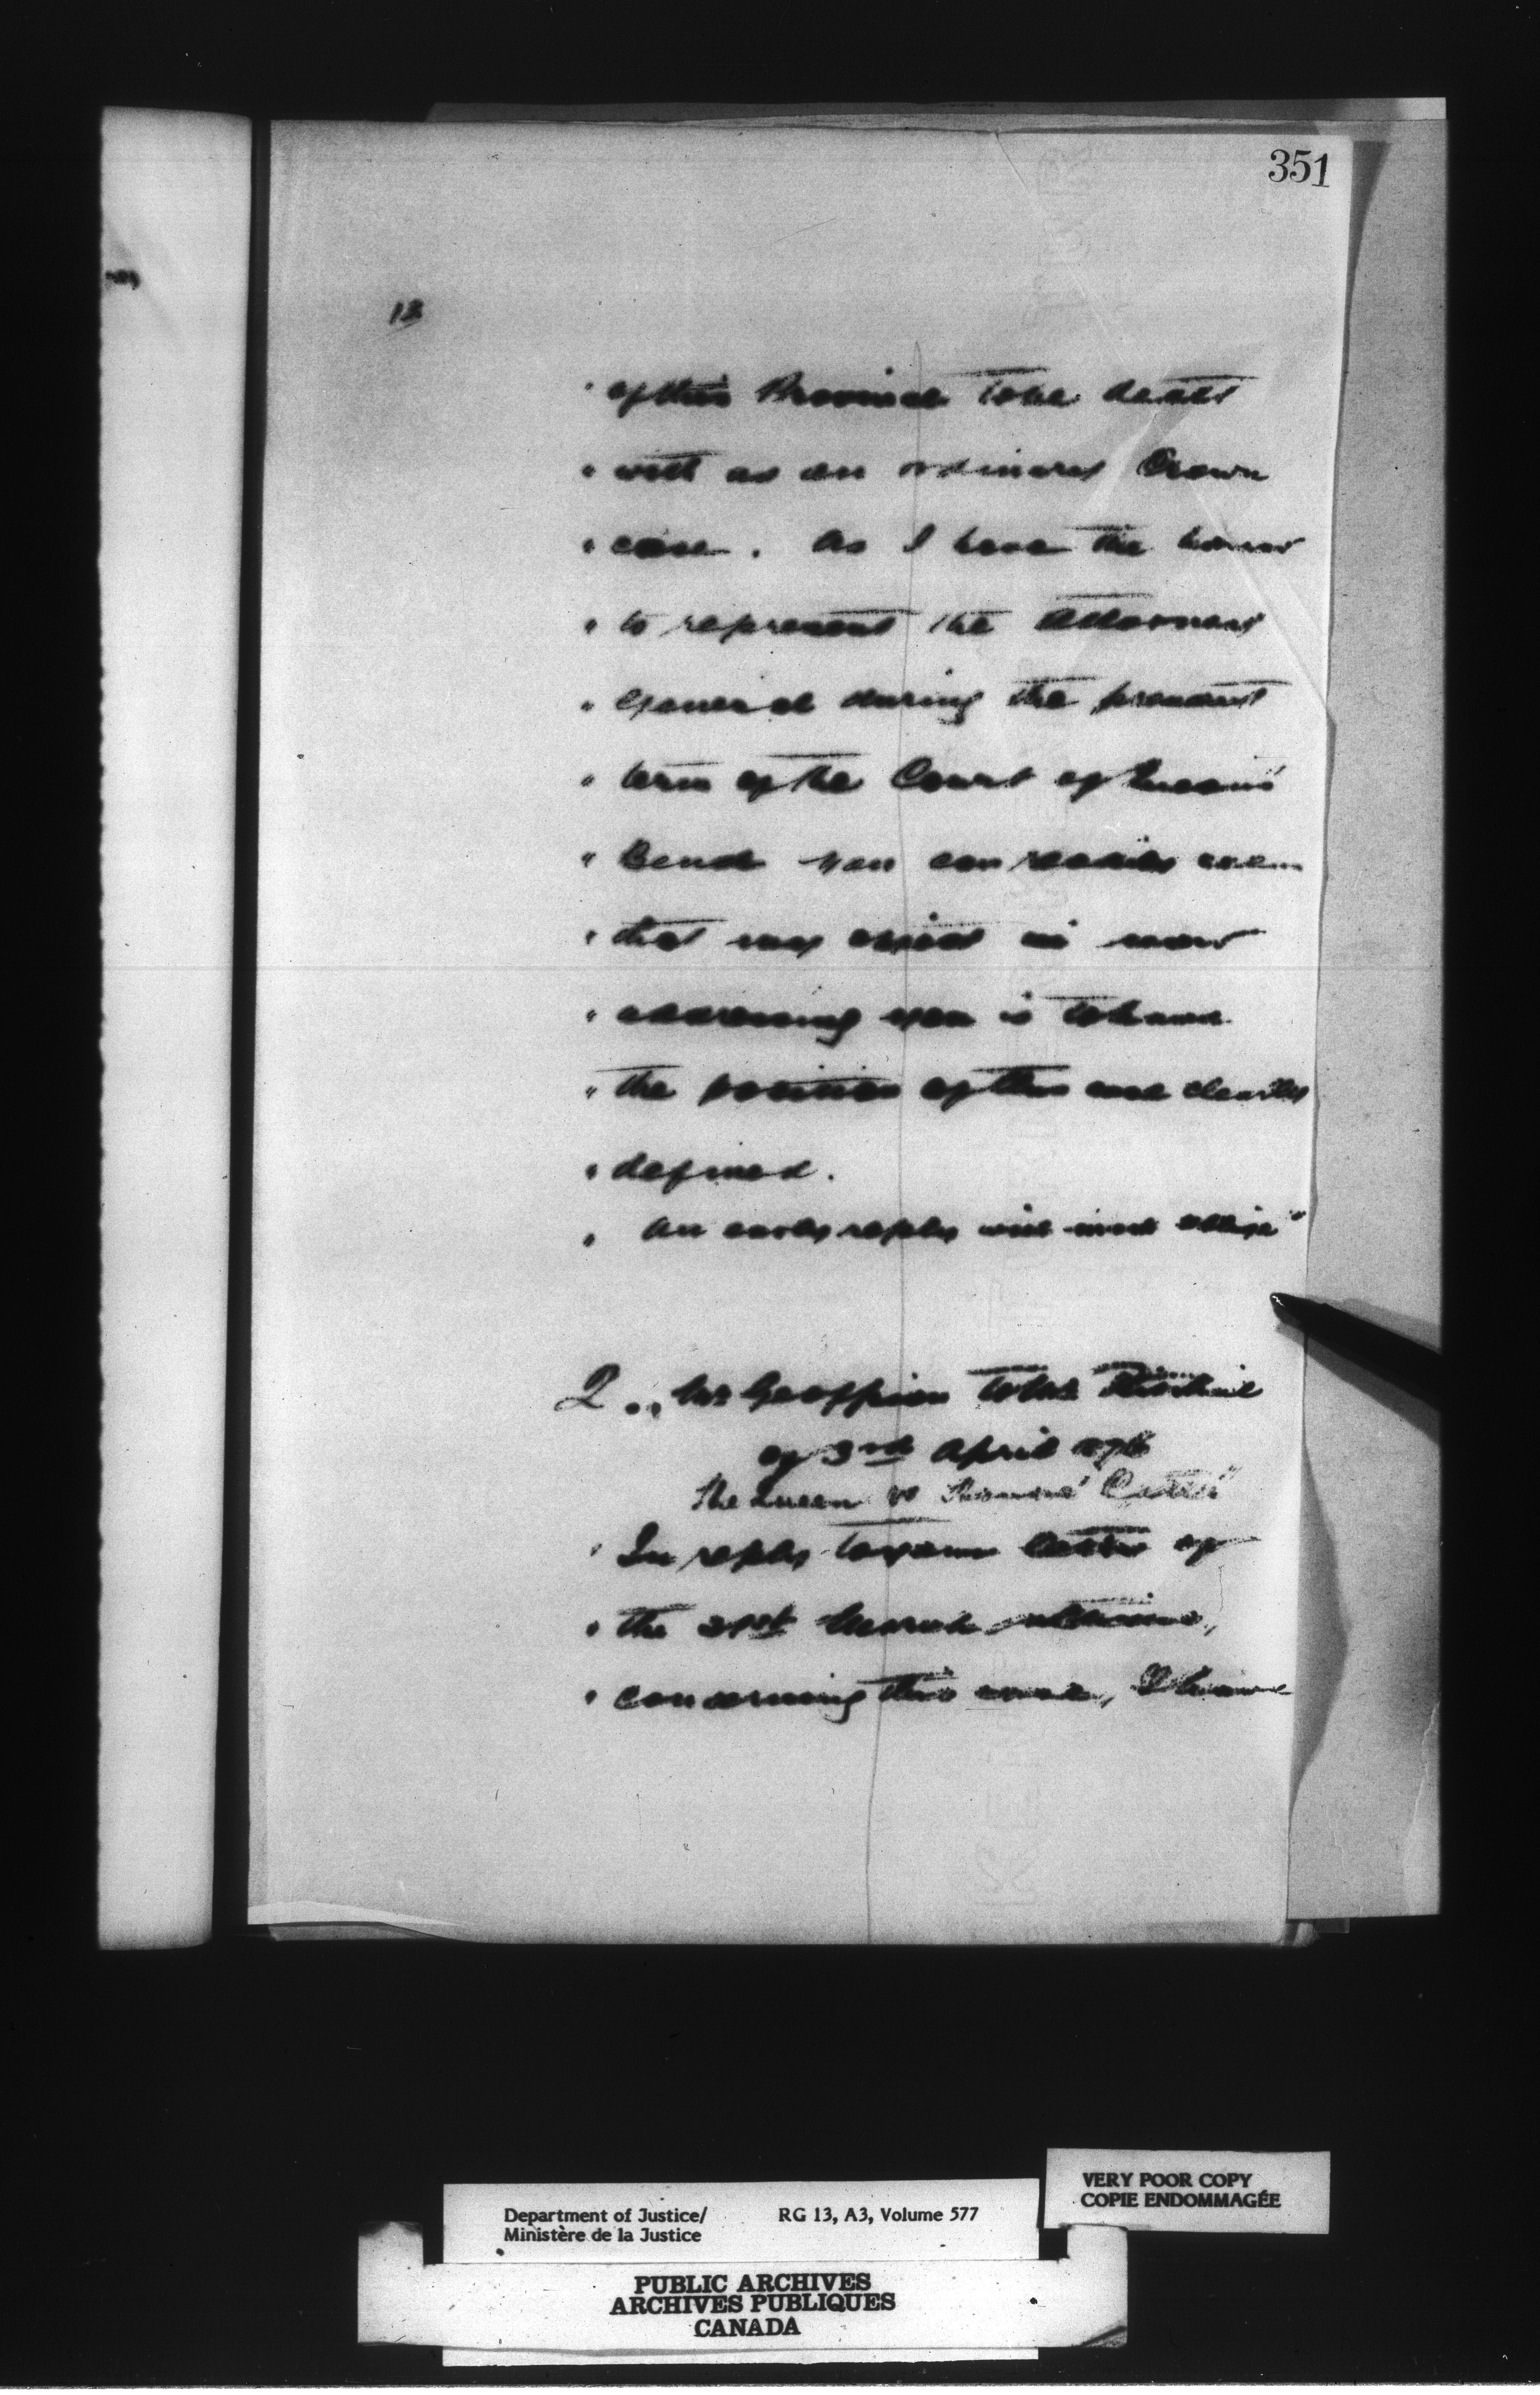 351
12
" of this Province to be dealt
" with as an ordinary Crown
" case. As I have the honor
" to represent the Attorney
" General during the present
" term of the Court of Queen's
" Bench you can readily
" that my object in now
" addressing you is to have
" the position of this case clearly
" defined.
" An early reply will much oblige"
2. Mr Geoffrion to Mr
of 3rd April 1876
The Queen vs
" In reply to your letter of
" the 31st March ultimo,
" concerning this case, I have
VERY POOR COPY
COPIE ENDOMMAGÉE
Department of Justice/ RG 13, A3, Volume 577
Ministère de la Justice
PUBLIC ARCHIVES
ARCHIVES PUBLIQUES
CANADA